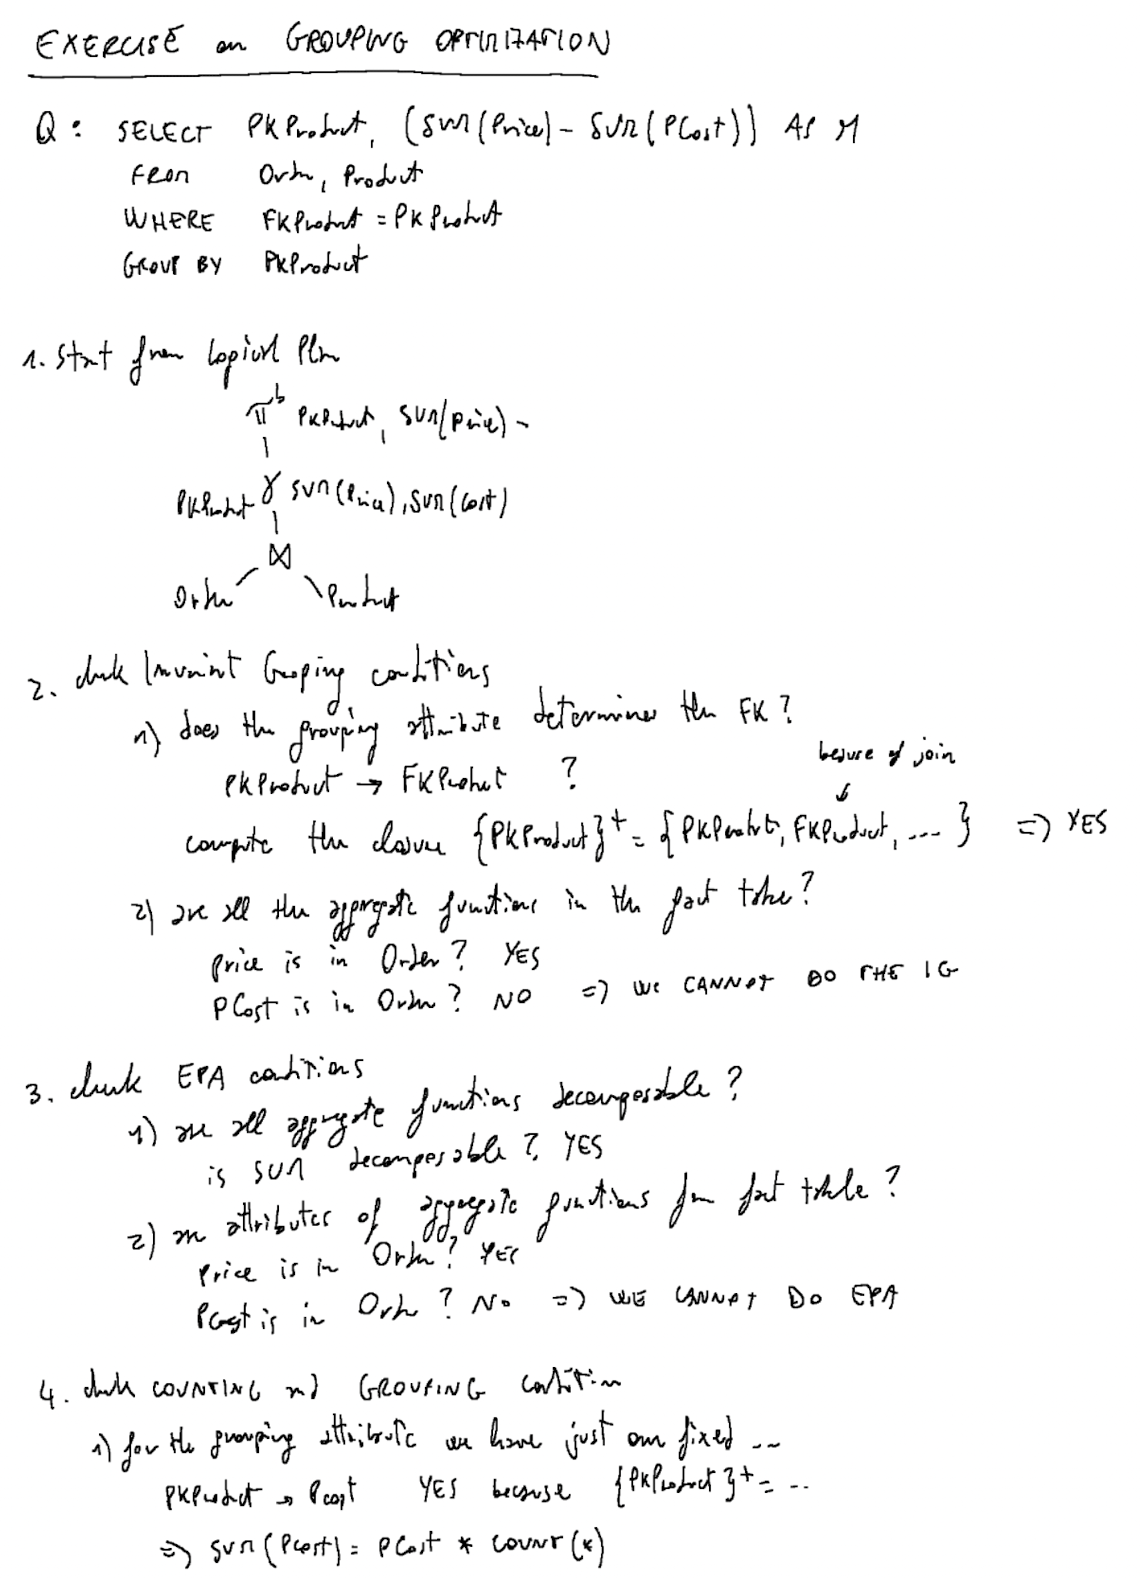 EXERCISE on GROUPING OPTIMIZATION
Q: SELECT PKProduct, (SUM(Price) - SUM(PCost)) AS M
FROM Order, Product
WHERE FKProduct = PKProduct
GROUP BY PKProduct
1. Start from Logical Plan
π^b PKProduct, SUM(Price) -
PKProduct γ SUM(Price), SUM(Cost)
⋈
Order Product
2. check Invariant Grouping conditions
1) does the grouping attribute determines the FK?
because of join
PKProduct → FKProduct ?
compute the closure {PKProduct}+ = {PKProduct, FKProduct, ... } => YES
2) are all the aggregate functions in the fact table?
Price is in Order? YES
PCost is in Order? NO => WE CANNOT DO THE IG
3. check EPA conditions
1) are all aggregate functions decomposable?
is SUM decomposable? YES
2) are attributes of aggregate functions from fact table?
Price is in Order? YES
PCost is in Order? NO => WE CANNOT DO EPA
4. check COUNTING and GROUPING condition
1) for the grouping attribute we have just one fixed ...
PKProduct → PCost YES because {PKProduct}+ = ...
=> SUM(PCost) = PCost * COUNT(*)